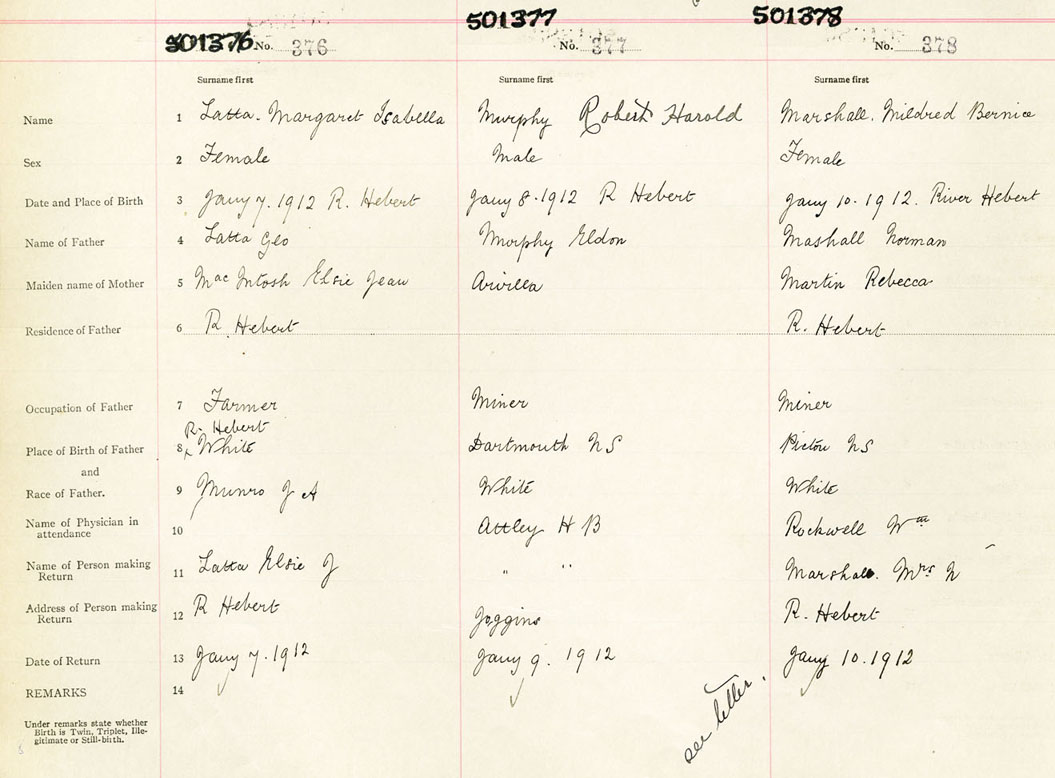 501376 No. 376 501377 No. 377 501378 No. 378
Surname first Surname first Surname first
Name 1 Latta. Margaret Isabella Murphy Robert Harold Marshall. Mildred Bernice
Sex 2 Female Male Female
Date and Place of Birth 3 Jany 7. 1912 R. Hebert Jany 8. 1912 R Hebert Jany 10. 1912. River Hebert
Name of Father 4 Latta Geo Murphy Eldon Mashall Norman
Maiden name of Mother 5 MacIntosh Elsie Jean Arvilla Martin Rebecca
Residence of Father 6 R. Hebert R. Hebert
Occupation of Father 7 Farmer Miner Miner
R. Hebert
Place of Birth of Father 8 x White Dartmouth NS Pictou NS
and
Race of Father. 9 Munro J A White White
Name of Physician in
attendance 10 Attley H B Rockwell Wm
Name of Person making
Return 11 Latta Elsie J " " Marshall. Mrs N
Address of Person making
Return 12 R Hebert Joggins R. Hebert
Date of Return 13 Jany 7. 1912 Jany 9. 1912 Jany 10. 1912
REMARKS 14
see letter.
Under remarks state whether
Birth is Twin, Triplet, Ille-
gitimate or Still-birth.